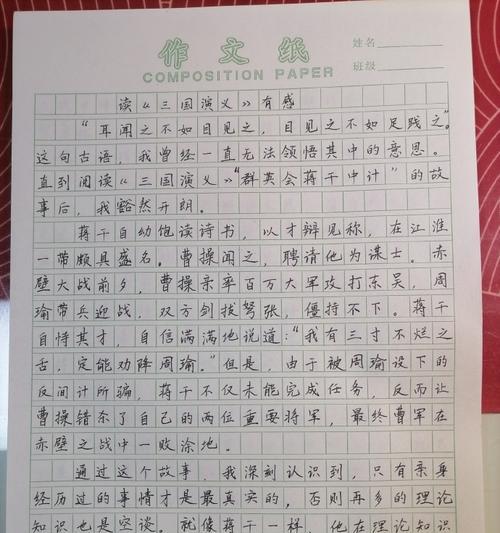 作文纸
COMPOSITION PAPER
姓名
班级
读《三国演义》有感
"耳闻之不如目见之，目见之不如足践之"
这句古语，我曾经一直无法领悟其中的意思。
直到阅读《三国演义》"群英会蒋干中计"的故
事后，我豁然开朗。
蒋干自幼饱读诗书，以才辩见称，在江淮
一带颇具盛名。曹操闻之，聘请他为谋士。赤
壁大战前夕，曹操亲率百万大军攻打东吴，周
瑜带兵迎战，双方剑拔弩张，僵持不下。蒋干
自恃其才，自信满满地说道："我有三寸不烂之
舌，定能劝降周瑜。"但是，由于被周瑜设下的
反间计所骗，蒋干不仅未能完成任务，反而让
曹操错杀了自己的两位重要将军，最终曹军在
赤壁之战中一败涂地。
通过这个故事，我深刻认识到，只有亲身
经历过的事情才是最真实的，否则再多的理论
知识也是空谈。就像蒋干一样，他在理论知识